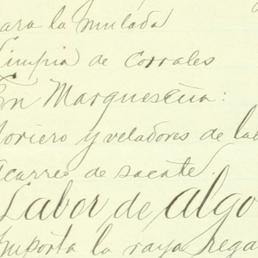 para la mulada
Limpia de corrales
En Marqueseña:
y veladores de
Acarreo de zacate.
Labor de algo
Importa la raya